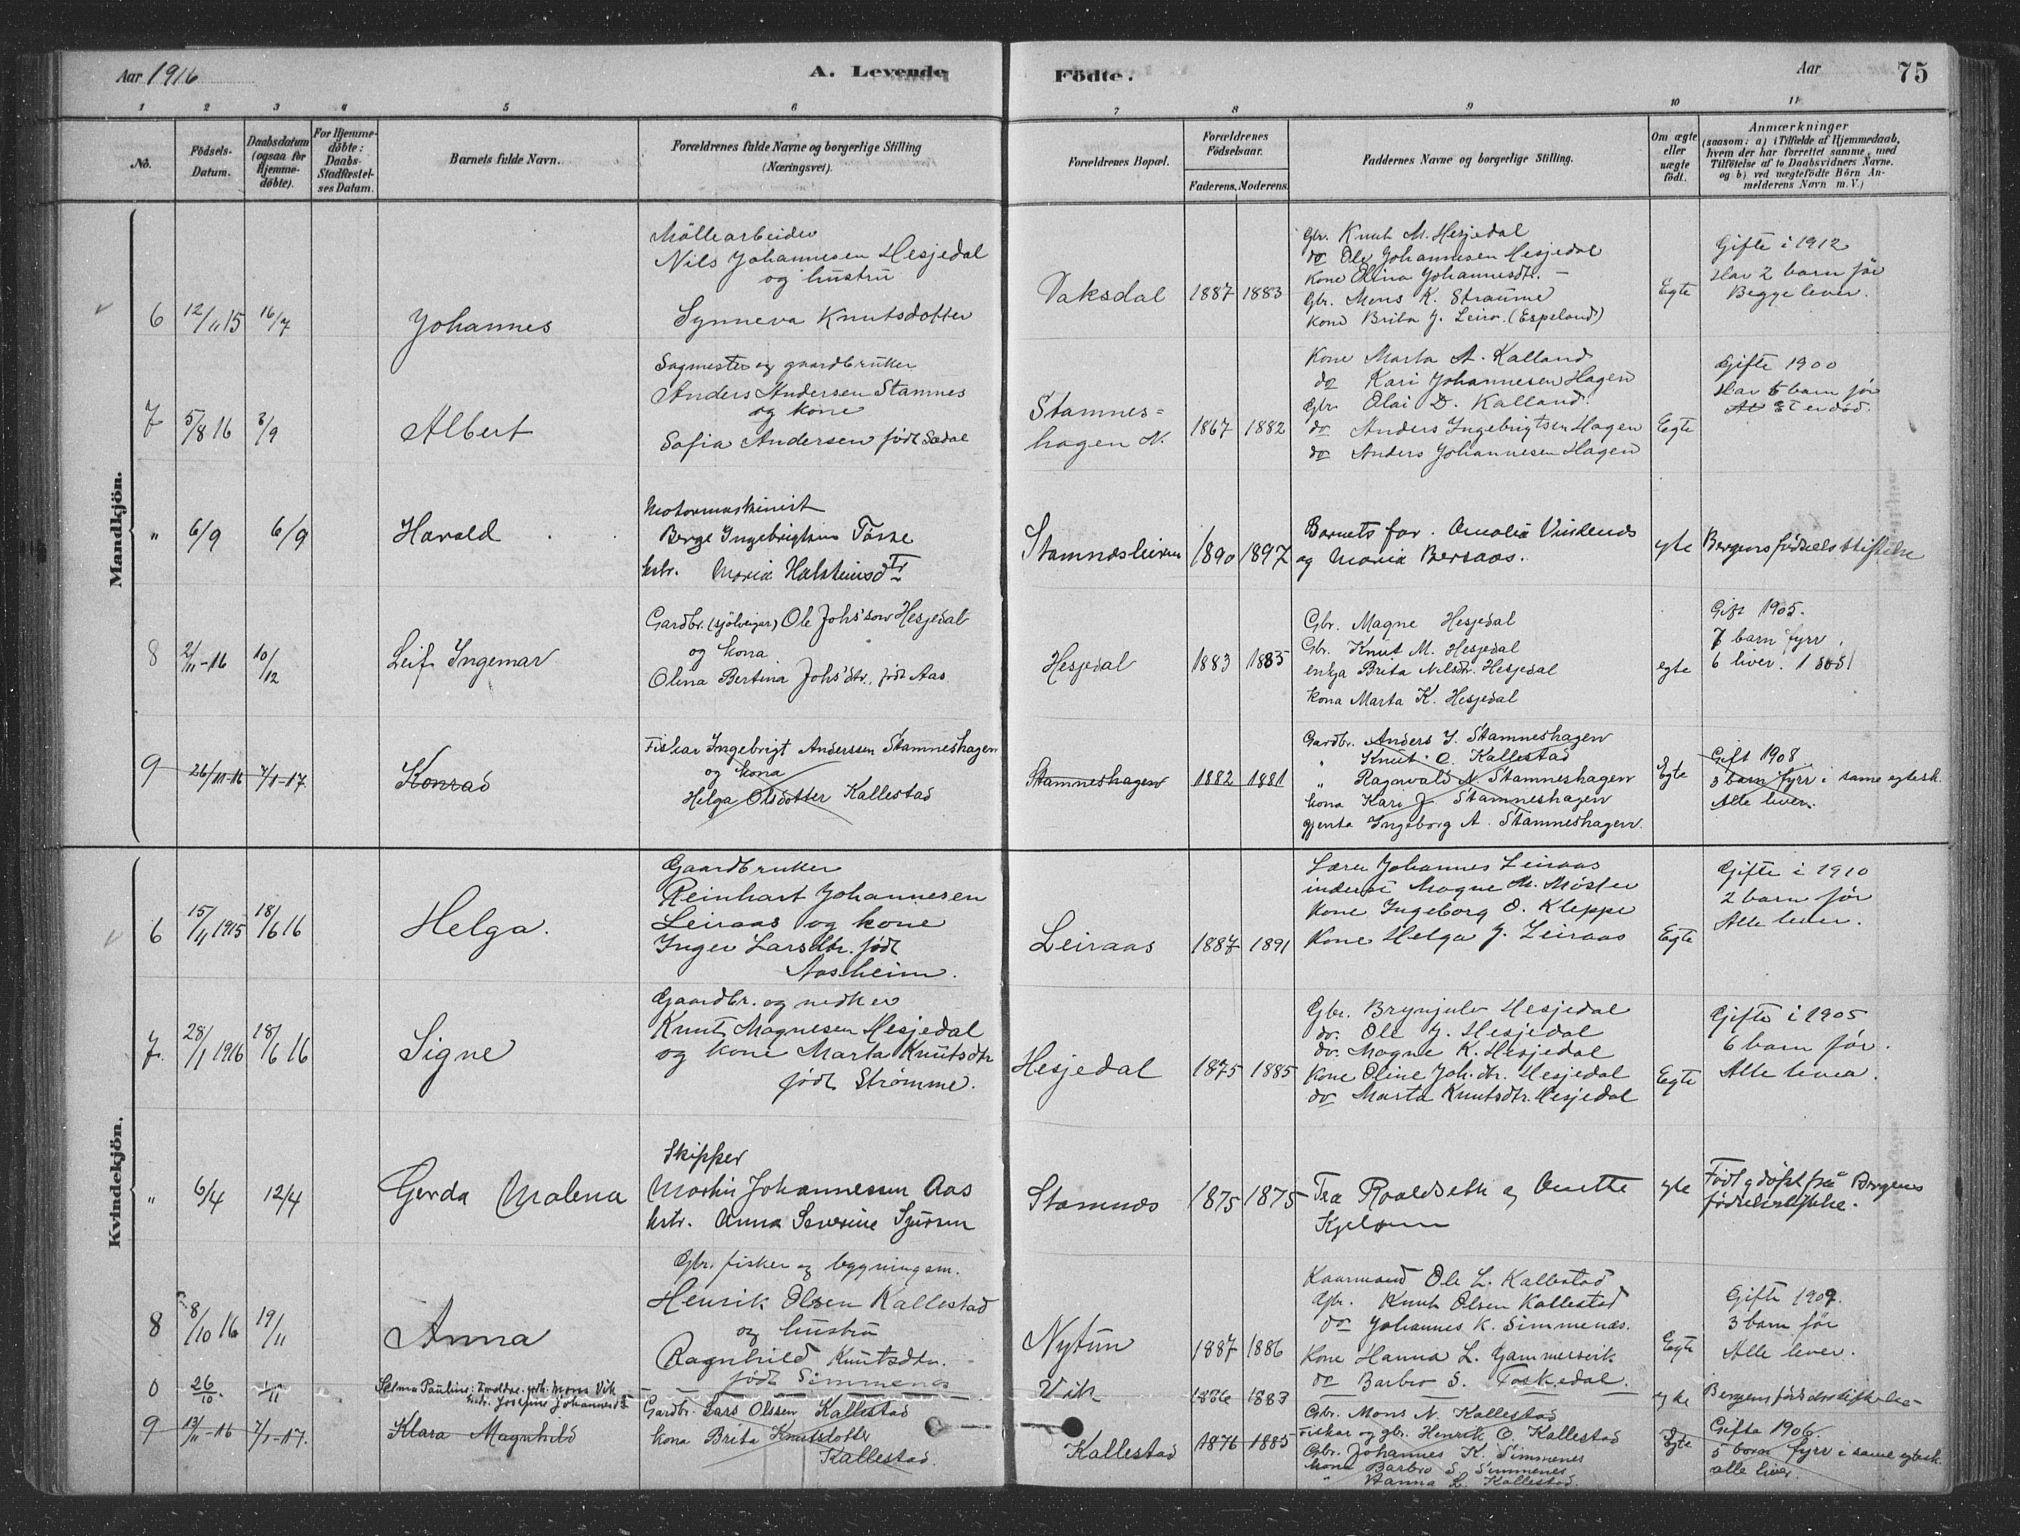 Aar 1916
A. Levende
Födte.
Aar
75
1 2 3 4 5 6 7 8 9 10 11
No.
Födsels-
Datum.
Daabsdatum
(ogsaa for
Hjemme-
döbte).
For Hjemme-
döbte:
Daabs-
Stadfæstel-
ses Datum.
Barnets fulde Navn.
Forældrenes fulde Navne og borgerlige Stilling
(Næringsvei).
Forældrenes Bopæl.
Forældrenes
Födselsaar.
Faderens. Moderens.
Faddernes Navne og borgerlige Stilling.
Om ægte
eller
uægte
født.
Anmærkninger
(saasom: a) i Tilfælde af Hjemmedaab,
hvem der har forrettet samme, med
Tilföielse af to Daabsvidners Navne.
og b) ved uægtefödte Börn An-
melderens Navn m. V.)
Mandkjön.
6 12/11 15 16/7
Johannes
Möllearbeider
Nils Johannesen Hesjedal
og hustru
Synneva Knutsdotter
Vaksdal
1887 1883
Gbr. Knut M. Hesjedal
do Ole Johannesen Hesjedal
Kone Olina Johannesdtr. —
Gbr. Mons K. Straume
Kone Brita J. Leiro (Espeland)
Egte
Gifte i 1912
Har 2 barn før
Begge lever.
7 5/8 16 3/9
Albert
Sagmester og gaardbruker
Anders Andersen Stamnes
og kone
Sofia Andersen født Sædal
Stamnes-
hagen N.
1867 1882
Kone Marta A. Kalland
do Kari Johannesen Hagen
Gbr Olai D. Kalland
do Anders Ingebrigtsen Hagen
do Anders Johannesen Hagen
Egte
Gifte 1900
Har 5 barn før
1 er død.
" 6/9 6/9
Harald
Motormaskinist
Berge Ingebrigtsen Tøsse
hstr. Maria Halsteinsd
Stamnesleiren
1890 1897
Barnets far. Amalia Vindenes
og Maria Bersaas.
egte
Bergens fødselsstiftelse
8 2/11-16 10/12
Leif Ingemar
Gardbr. (sjølveigar) Ole Johs'son Hesjedal
og kona
Olina Bertina Johs'dtr., født Aas
Hesjedal
1883 1885
Gbr. Magne Hesjedal
Gbr. Knut M. Hesjedal
enkja Brita Nilsdtr. Hesjedal
kona Marta K. Hesjedal
egte
Gift 1905.
7 barn fyrr.
6 liver. 1 død
9 26/11-16 7/1-17.
Konrad
Fiskar Ingebrigt Anderssen Stamneshagen
og kona
Helga Olsdotter Kallestad
Stamneshagen
1882 1881
Gardbr. Anders J. Stamneshagen
" Knut O. Kallestad
" Ragnvald N. Stamneshagen
kona Kari J. Stamneshagen
gjenta Ingeborg A. Stamneshagen.
Egte
Gift 1908
3 barn fyrr i same egtesk.
Alle liver.
Kvindekjön.
6 15/11 1915 18/6 16
Helga.
Gaardbruker
Reinhart Johannesen
Leiraas og kone
Inger Larsdtr. født
Aasheim.
Leiraas
1887 1891
Lærer Johannes Leiraas
inderst Magne M. Møster
Kone Ingeborg O. Kleppe
Kone Helga J. Leiraas
Egte
Gifte i 1910
2 barn før
Alle lever.
7. 28/1 1916 18/6 16
Signe
Gaardbr. og
Knut Magnesen Hesjedal
og kone Marta Knutsdtr
født Strømme.
Hesjedal
1875 1885
Gbr. Brynjulv Hesjedal
do. Ole J. Hesjedal
do. Magne K. Hesjedal
Kone Oline Joh.dtr. Hesjedal
do Marta Knutsdtr. Hesjedal
Egte
Gifte i 1905
6 barn før.
Alle lever.
" 6/4 12/4
Gerda Malena
Skipper
Martin Johannessen Aas
hstr. Anna Severine Sjursen
Stamnes
1875 1875
Tea Roaldseth og Anette
egte
Født og døpt på Bergens
fødselsstiftelse.
8 8/10 16 19/11
Anna
Gbr. fisker og bygningsm.
Henrik Olsen Kallestad
og hustru
Ragnhild Knutsdtr.
født Simmenes
Nytun
1887 1886
Kaarmand Ole L. Kallestad
Gbr. Knut Olsen Kallestad
do Johannes K. Simmenes.
Kone Hanna L. Gammersvik
do Barbro S. Toskedal.
Egte
Gifte 1909.
3 barn før
Alle lever.
0 26/10. 1/11
Selma Pauline: Foreldre: Mons Vik
hstr. Josefine Johannesd
Vik
1886 1883
egte
Bergens fødselsstiftelse
9 13/11-16 7/1-17.
Klara Magnhild
Gardbr. Lars Olssen Kallestad
kona Brita Knutsdotter
Kallestad.
Kallestad
1876 1885
Gbr. Mons N. Kallestad
Fiskar og gbr. Henrik O. Kallestad
Gbr. Johannes K. Simmenes
kona Barbro S. Simmenes
" Hanna L. Kallestad.
Egte
Gifta 1906.
5 born fyrr i same egtesk.
alle liver.